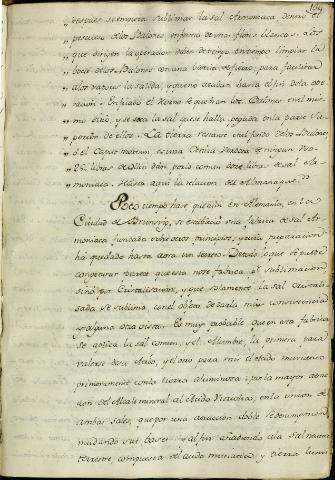 " empieza á sublimar la sal Armoniaca, dentro el
" pescuezo de los Balones en forma de unas flores blancas. Los
" que dirigen la operacion deben de tiempo en tiempo limpiar la
" boca de los Balones con una varita de fierro, para facilitar
" a los vapores la salida,
" Enfriado el Horno se quebran los Balones en el mis-
" mo sitio, y se saca la sal que se halla pegada en la parte su-
" perior de ellos. La tierra restante en el fondo de los Balones
" ó el Caput mortuum es una Ceniza
" libras de sal Ar-
" moniaca. Hasta aqui la relacion del Almanaque."
Poco tiempo hace que en Alemania, en la
Ciudad de Brunsvig, se estableció una fabrica de sal Ar-
moniaca fundada sobre otros principios, y cuia preparacion
ha quedado hasta aora un secreto. De todo lo que se puede
conjeturar parece que esta no se fabrica por sublimacion
sino por Cristalizacion, y que solamente la sal cristali-
zada se sublima, con el objeto de darla mas consistencia
y alguna otra vista. Es muy probable que en esta fabrica
se aplica la sal comun, y el Alumbre, la primera para
valerse de su Acido, y el otro para unir el acido muriatico
primeramente con la tierra aluminosa: por la mayor atrac-
cion del Alcali mineral al Acido Vitriolico, en la union de
ambas sales, que por una atraccion doble se descomponen
mudando sus bases: y al fin añadiendo a la sal nueva
terrestre, compuesta del acido muriatico, y tierra